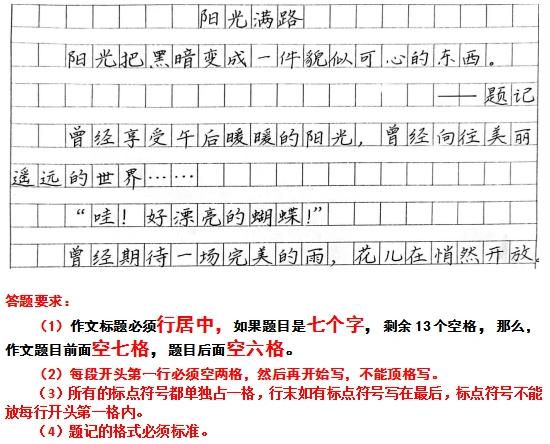 阳光满路
阳光把黑暗变成一件貌似可心的东西。
——题记
曾经享受午后暖暖的阳光，曾经向往美丽
遥远的世界……
“哇！好漂亮的蝴蝶！”
曾经期待一场完美的雨，花儿在悄然开放。
答题要求：
（1）作文标题必须行居中，如果题目是七个字，剩余13个空格，那么，
作文题目前面空七格，题目后面空六格。
（2）每段开头第一行必须空两格，然后再开始写，不能顶格写。
（3）所有的标点符号都单独占一格，行末如有标点符号写在最后，标点符号不能
放每行开头第一格内。
（4）题记的格式必须标准。